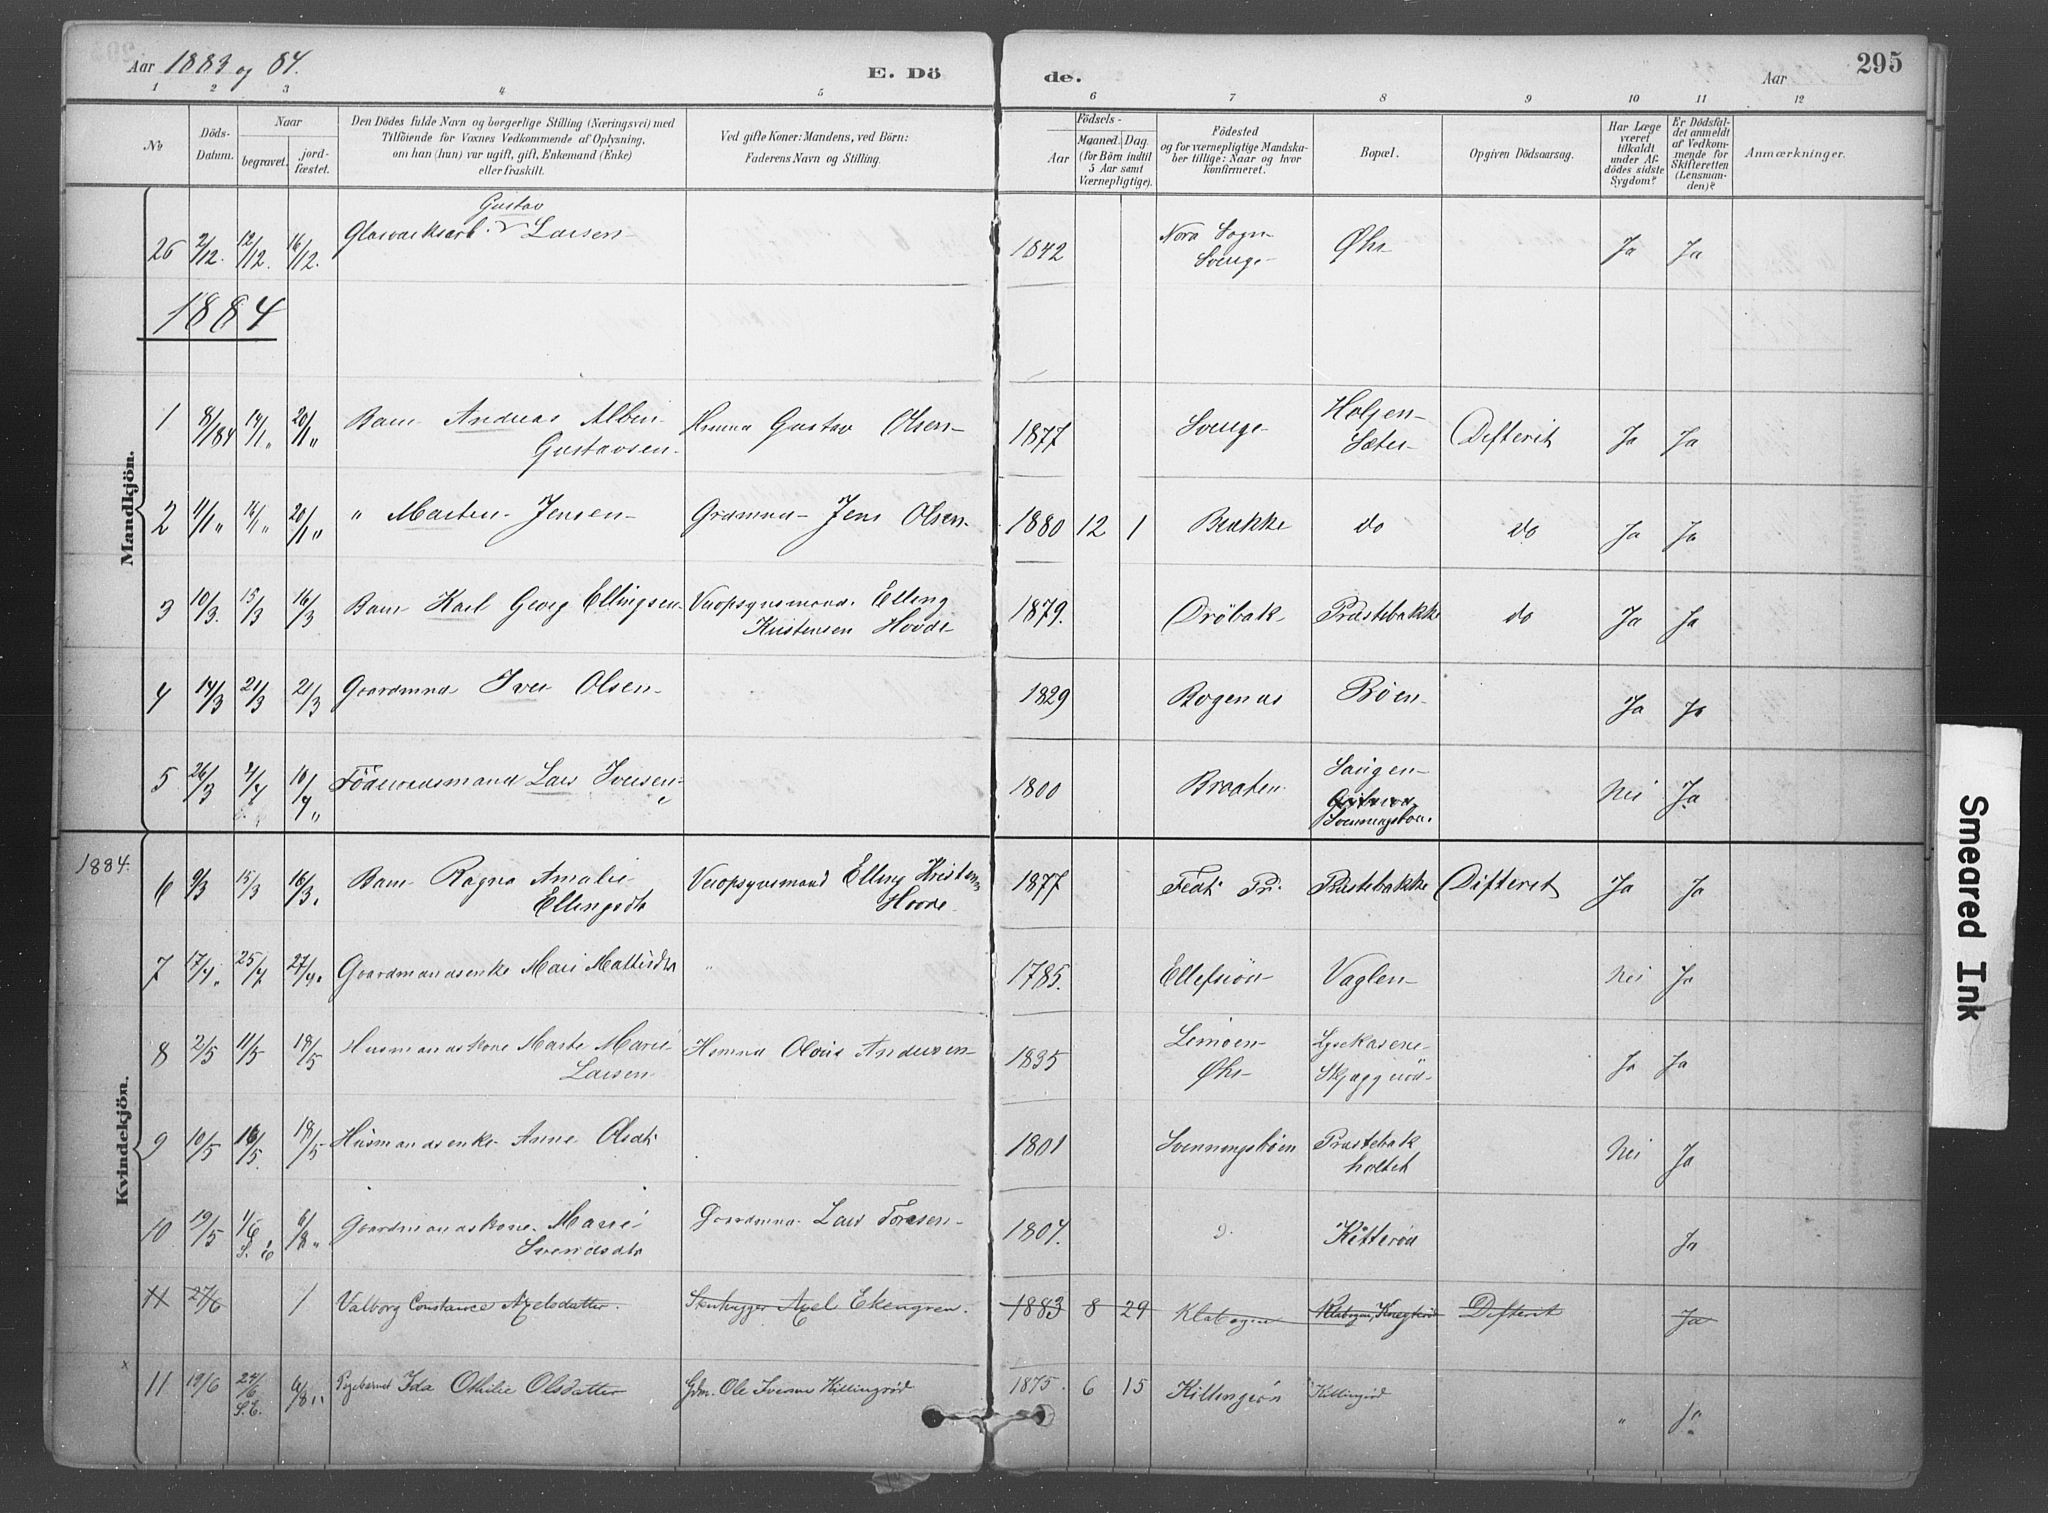 Aar 1883 og 84.
E. Döde.
Aar
295
1 2 3 4 5 6 7 8 9 10 11 12
No
Döds-Datum.
Naar
begravet.
jord-fæstet.
Den Dödes fulde Navn og borgerlige Stilling (Næringsvei) med
Tilföiende for Voxnes Vedkommende af Oplysning,
om han (hun) var ugift, gift, Enkemand (Enke)
eller fraskilt.
Ved gifte Koner: Mandens, ved Börn:
Faderens Navn og Stilling.
Födsels-
Aar
Maaned. Dag.
(for Börn indtil
5 Aar samt
Værnepligtige).
Födested
og for værnepligtige Mandska-
ber tillige: Naar og hvor
konfirmeret.
Bopæl.
Opgiven Dödsaarsag.
Har Læge
været
tilkaldt
under Af-
dödes sidste
Sygdom?
Er Dödsfal-
det anmeldt
af Vedkom-
mende for
Skifteretten
(Lensman-
den)?
Anmærkninger.
Mandkjön.
26 2/12. 12/12. 16/12. Glasværksarb. Gustav Larsen 1842 Nora Sogn Sverige Øhr Ja Ja
1884
1 8/1 84 14/1 " 20/1 " Barn Andreas Albin Gustavsen Hmnd Gustav Olsen 1877 Sverige Holjen Sæter Difterit Ja Ja
2 11/1 " 14/1 " 20/1 " " Marten Jensen Grdmnd Jens Olsen 1880 12 1 Bakke do do Ja Ja
3 10/3. 15/3 16/3 Barn Karl Georg Ellingsen Veiopsynsmand Elling Kristensen Hovde 1879. Dröbak Præstebakke do Ja Ja
4 14/3 21/3 21/3 Gaardmnd Iver Olsen 1829 Bogenæs Böen Ja Ja
5 26/3 4/4 10/4 " Föderaadsmand Lars Iversen 1800 Braaten Svenningsböen. Nei Ja
1884.
Kvindekjön.
6 9/3 15/3 16/3. Barn Ragna Amalie Ellingsdtr Veiopsynsmand Elling Kristen Hovde 1877 Præstebakke Difterit Ja Ja
7 17/4. 25/4 27/4. Gaardmandsenke Mari Mattisdtr " 1785. Ellefsrön Vaglen Nei Ja
8 2/5 11/5 18/5 Husmandskone Marte Marie Larsen Hmnd Olaus Andersen 1835 Limoen Øhr Skjæggeröd Ja Ja
9 10/5 16/5. 18/5 Husmandsenke Anne Olsdt. 1801 Svenningsböen Præstebak holtet Nei Ja
10 19/5 1/6 S. E. 6/8 " Gaardmandskone Marie Svendsdtr Gaardmnd Lars Toresen 1804. Kitteröd Ja
11 27/6 / Valborg Constance Axelsdatter. Stenhugger Axel Ekengren. 1883 8 29 Klabogen Klabogen, Difterit Ja
x
11 19/6 24/6 S. E. 6/8 " Pigebarnet Ida Othilie Olsdatter Gdm. Ole Iversen Killingröd 1875. 6 15 Killingrön Killingröd " Ja
Smeared Ink